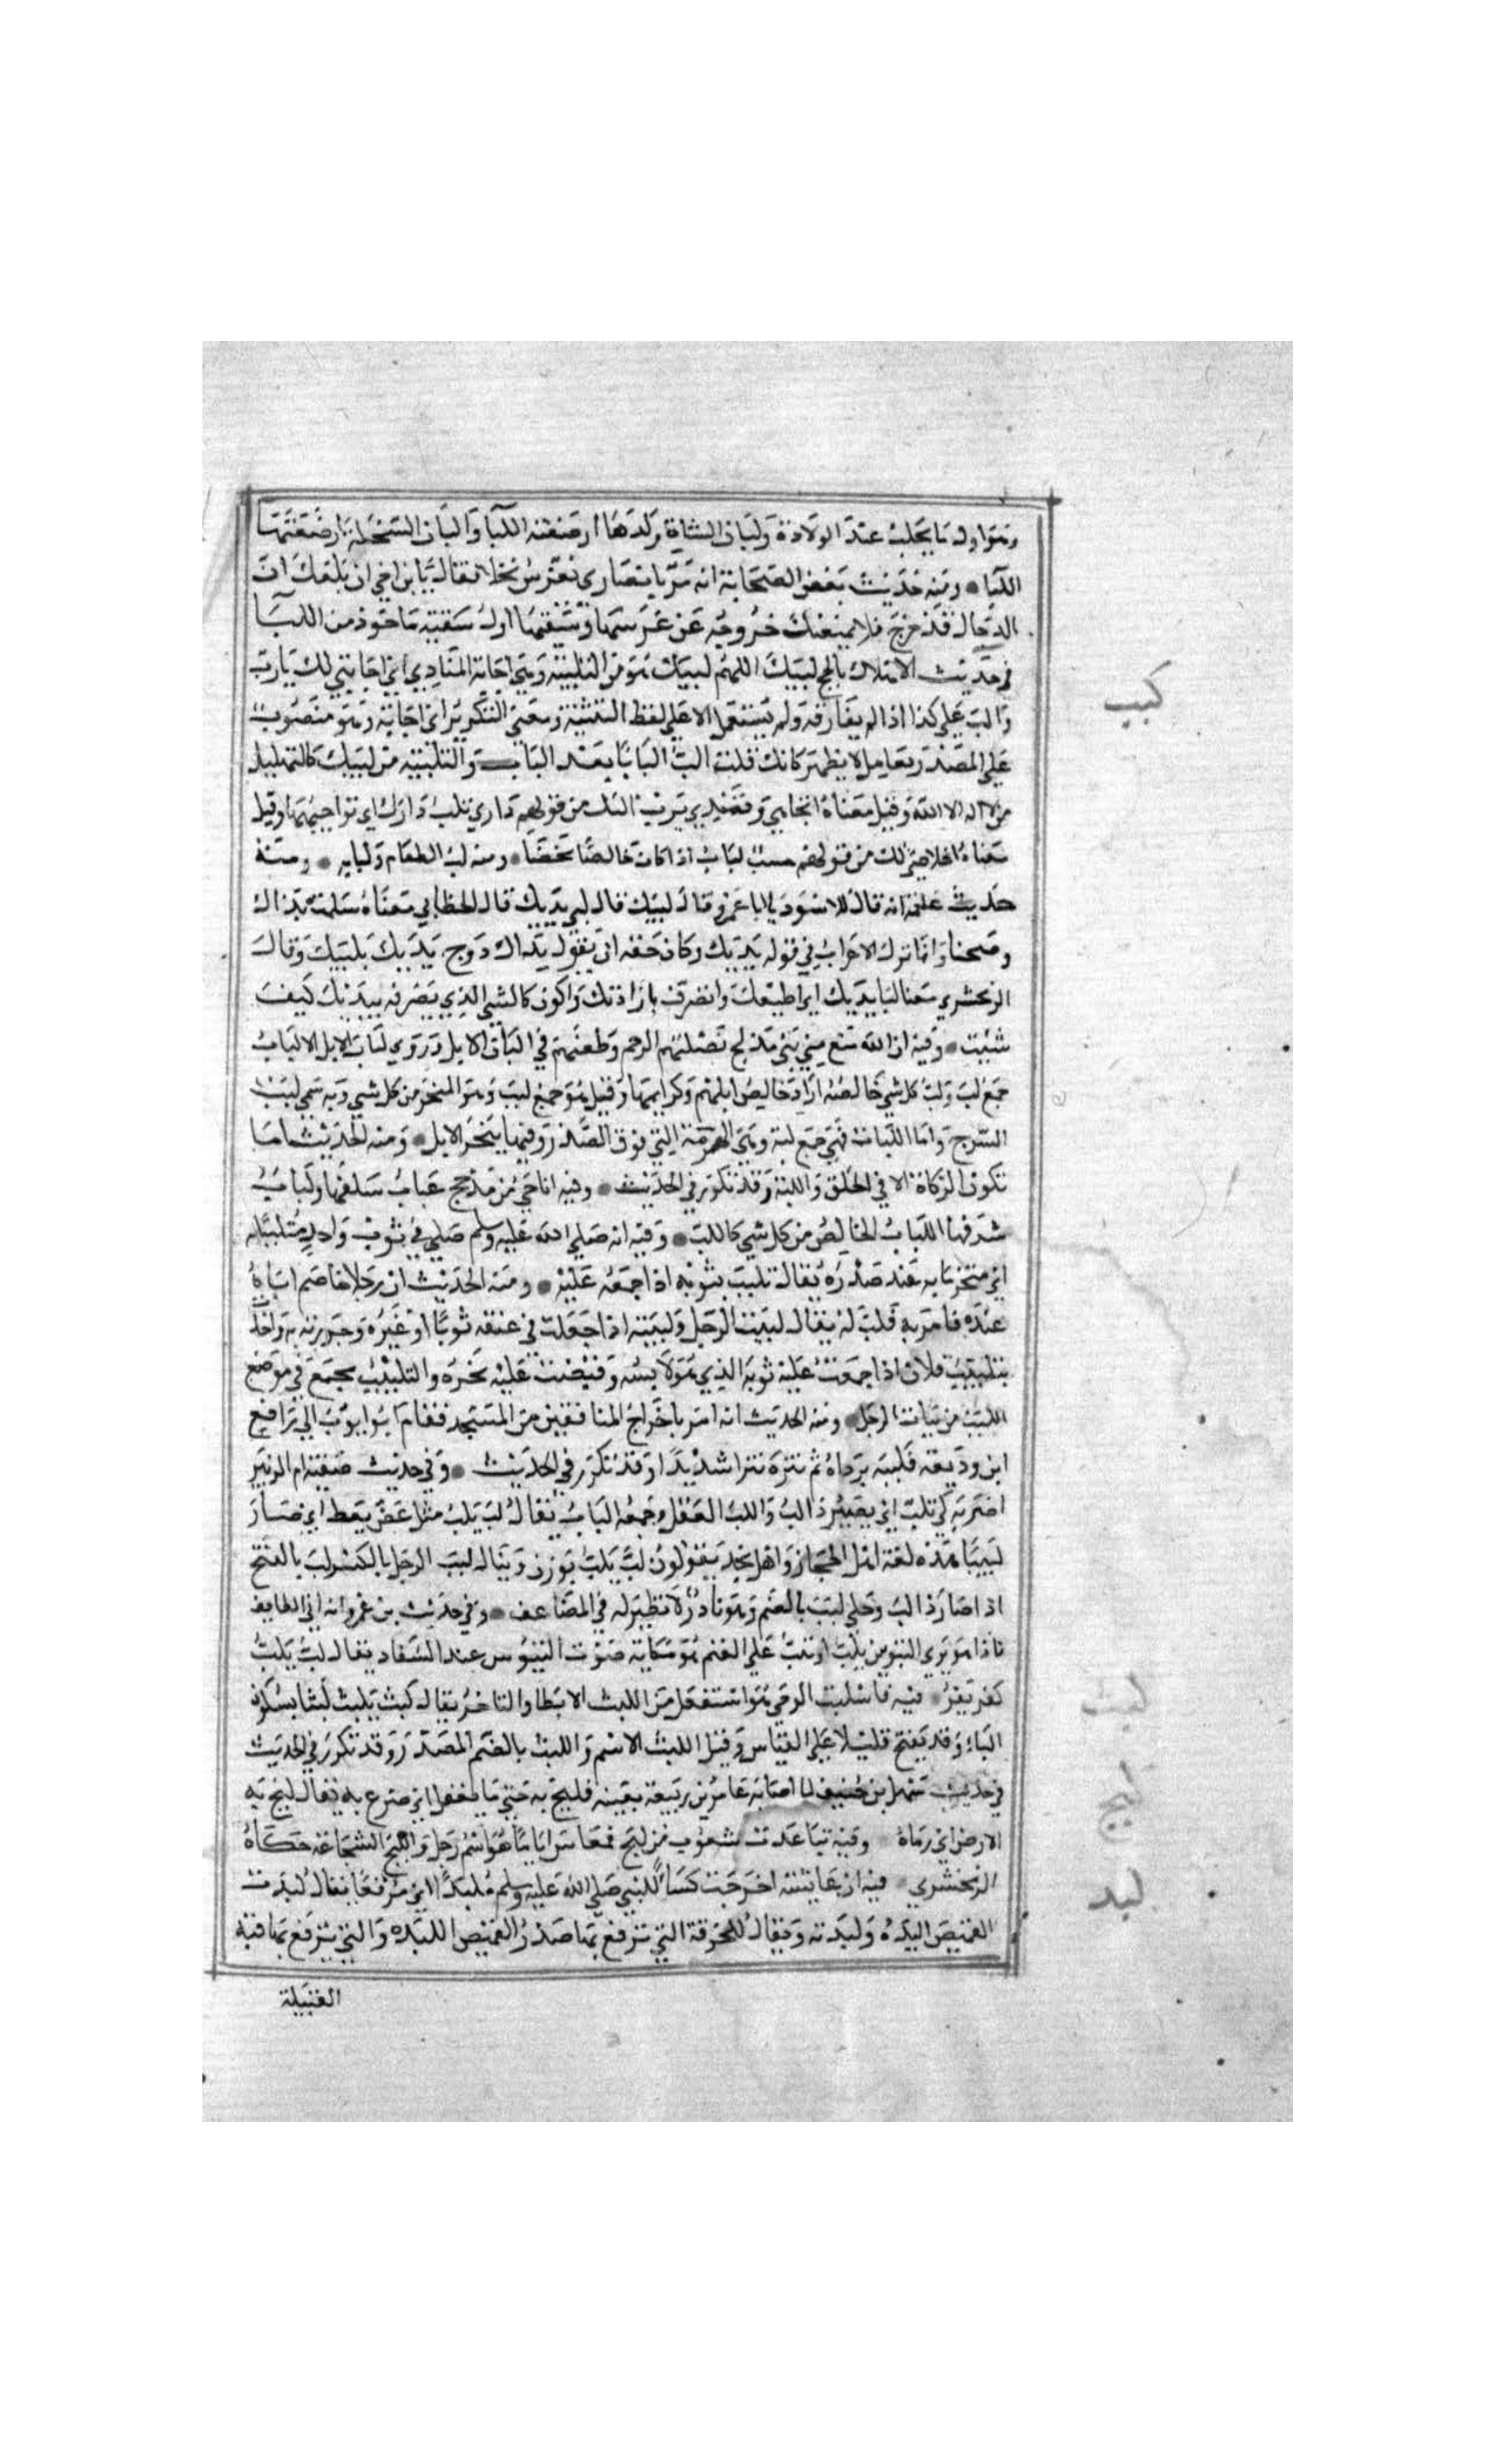 وهو اول ما يحلب عند الولادة ولبات الشاة ولدها ارضعته اللبا والبات السخلة ارضعتها
اللبا ومنه حديث بعض الصحابة انه مر بانصاري نغرس نخلا فقال يا بن اخي ان بلغك ان
الدجال قد خرج فلا يمنعنك خروجه عن غرسها وسقيها اول سقيته ماخوذ من اللبا
في حديث الاهلال بالحج لبيك اللهم لبيك هو من التلبية وهي اجابة المنادي اي اجابتي لك يا رب
والب علي كذا اذا لم يفارقه ولم يستعمل الا علي لفظ التثنية ومعني التكرير اي اجابة وهو منصوب
علي المصدر بعامل لا يظهر كانك قلت الب البابا بعد الباب والتلبية من لبيك كالتهليل
من لا اله الا الله وقيل معناه اتجاهي وقصدي يرب اليك من قولهم داري تلب دارك اي تواجهها وقيل
معناه اخلاصي لك من قولهم حسب لباب اذا كان خالصا محضا ومنه لب الطعام ولبابه ومنه
حديث علقمة انه قال للاسود يا ابا عمرو قال لبيك قال لبي يديك قال الخطابي معناه سلمت يداك
وصحتا وانما ترك الاعراب في قوله يديك وكان حقه ان يقول يداك دوج يديك بلبيك وقال
الزمخشري معنا لبا يديك اي اطيعك واتصرف بارادتك واكون كالشي الذي يصرفه بيديك كيف
شيت وفيه ان الله منع مني بني مدلج لصلتهم الرحم وطعنهم في البات الابل وروي لبات الابل الالباب
جمع لب ولب كل شي خالصه اراد خالص ابلهم وكرايمها وقيل هو جمع لبب وهو المنحر من كل شي وبه سمي لبب
السرج واما اللبات فهي جمع لبة وهي الهزمة التي فوق الصدر وفيها ينحر الابل ومنه الحديث اما
تكون الزكاة الا في الحلق واللبة وقد تكرر في الحديث وفيه انا حي من مذحج عباب سلفها ولباب
شرفها اللباب الخالص من كل شي كاللب وفيه انه صلي الله عليه وسلم صلي في ثوب واحد متلببا به
اي متحزما به عند صدره يقال تلبب بثوبه اذا جمعه عليه ومنه الحديث ان رجلا خاصم اباه
عنده فامر به فلب له يقال لببت الرجل ولببته اذا جعلت في عنقه ثوبا او غيره وجررته به واخذت
بتلبيب فلان اذا جمعت عليه ثوبه الذي هو لابسه وقبضت عليه نحره والتلبيب مجمع في موضع
اللبب من ثياب الرجل ومنه الحديث انه امر باخراج المنافقين من المسجد فقام ابو ايوب الي رافع
ابن وديعة فلببه برداه ثم نتره نترا شديدا وقد تكرر في الحديث وفي حديث صفية ام الزبير
اضربه كي تلب اي يصير ذا لب واللب العقل وجمعه الباب يقال لب يلب مثل عض يعض اي صار
لبيبا هذه لغة اهل الحجاز واهل نجد يقولون لب يلب بوزن ويقال لبب الرجل بالكسر لب بالفتح
اذا صار ذا لب وحكي لبب بالضم وهو نادر لا نظير له في المضاعف وفي حديث بن عمرو انه اتي الطايف
فاذا هو يري التيوس تلب او تنب علي الغنم هو حكاية صوت التيوس عند السفاد يقال لب يلب
كفر يفر فيه فاستلبث الوحي هو استفعل من اللبث الابطا والتاخر يقال لبث يلبث لبثا بسكون
الباء وقد يفتح قليلا علي القياس وقيل اللبث الاسم واللبث بالضم المصدر وقد تكرر في الحديث
في حديث سهل بن حنيف لما اصابه عامر بن ربيعة بعينه فلبج به حتي ما يعقل اي صرع به يقال لبج به
الارض اي رماه وفيه تباعدت شعوب من لبج فعاش اياما هو اسم رجل واللبج الشجاعة حكاه
الزمخشري فيه ان عايشة اخرجت كساء للنبي صلي الله عليه وسلم ملبدا اي مرقعا يقال لبدت
القميص البده ولبدته ويقال للخرقة التي ترقع بها صدر القميص اللبده والتي يترقع بها قبه
القبيلة
لبب
لبث
لبج
لبد